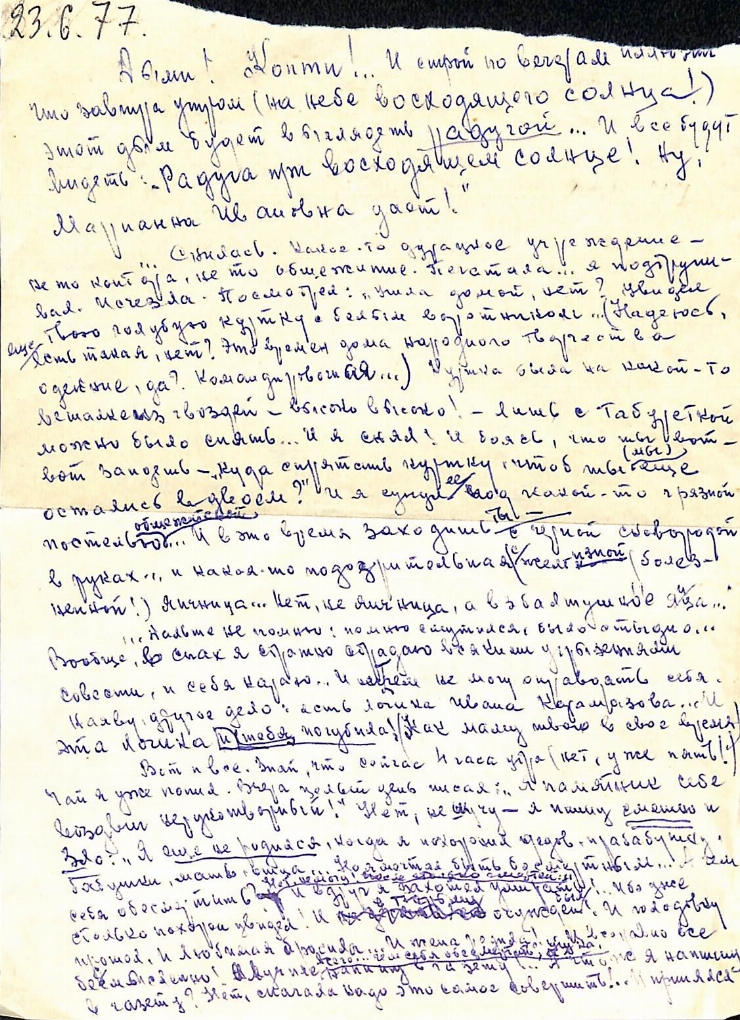 23.6.77.
Дыми! Копти!... И строй по вечерам иллюзии
что завтра утром (на небе восходящего солнца!)
этот дым будет выглядеть радугой... И все будут
видеть: „Радуга при восходящем солнце! Ну,
Марианна Ивановна даёт!"
... Снилась. Какое-то дурацкое учреждение –
не то контора, не то общежитие. Печатала... я подшучи-
вал. Исчезла. Посмотрел: „ушла домой, нет? Увидел
твою голубую куртку с белым воротником... (Надеюсь,
есть еще такая, нет? Это времен дома народного творчества
одеяние, да? Командировочная...) Куртка была на какой-то
вешалке из гвоздей – высоко высоко! – лишь с табуреткой
можно было снять... И я снял! И боясь, что ты вот-
вот зайдешь – „куда спрятать куртку, чтоб мы (мы) еще
остались вдвоем?" И я сунул ее под какой-то грязной
общежитской
постелью... И в это время заходишь ты – с черной сковородой
в руках... и какая-то подозрительная (с желтизной болез-
ненной!) яичница... Нет, не яичница, а взболтушное яйцо...
... Дальше не помню: помню смутился, было стыдно...
Вообще, во снах я страшно страдаю всякими угрызениями
совести, и себя караю... И ничем не могу оправдать себя.
Наяву другое дело: есть логика Ивана Карамазова... И
эта логика и тебя погубила! (Как маму твою в свое время)
Вот и все. Знай, что сейчас 4 часа утра (нет, уже пять!)
Чай я уже попил. Вчера целый день писал: „Я памятник себе
воздвиг нерукотворный!" Нет, не шучу – я пишу смешно и
зло: „Я еще не родился, когда я похоронил дедов, прабабушку,
бабушки, мать, отца... Но я мечтал быть бессмертным... – Чем
себя обессмертить? И вдруг я захотел умереть! Ибо уже
столько похорон увидел! И в тюрьмах был осужден! И голодовку
прошел, И любимая бросила... И жена
бессмысленно! в газету!... А что ж я напишу
в газету? Нет, сначала надо это самое совершить!.. И принялся